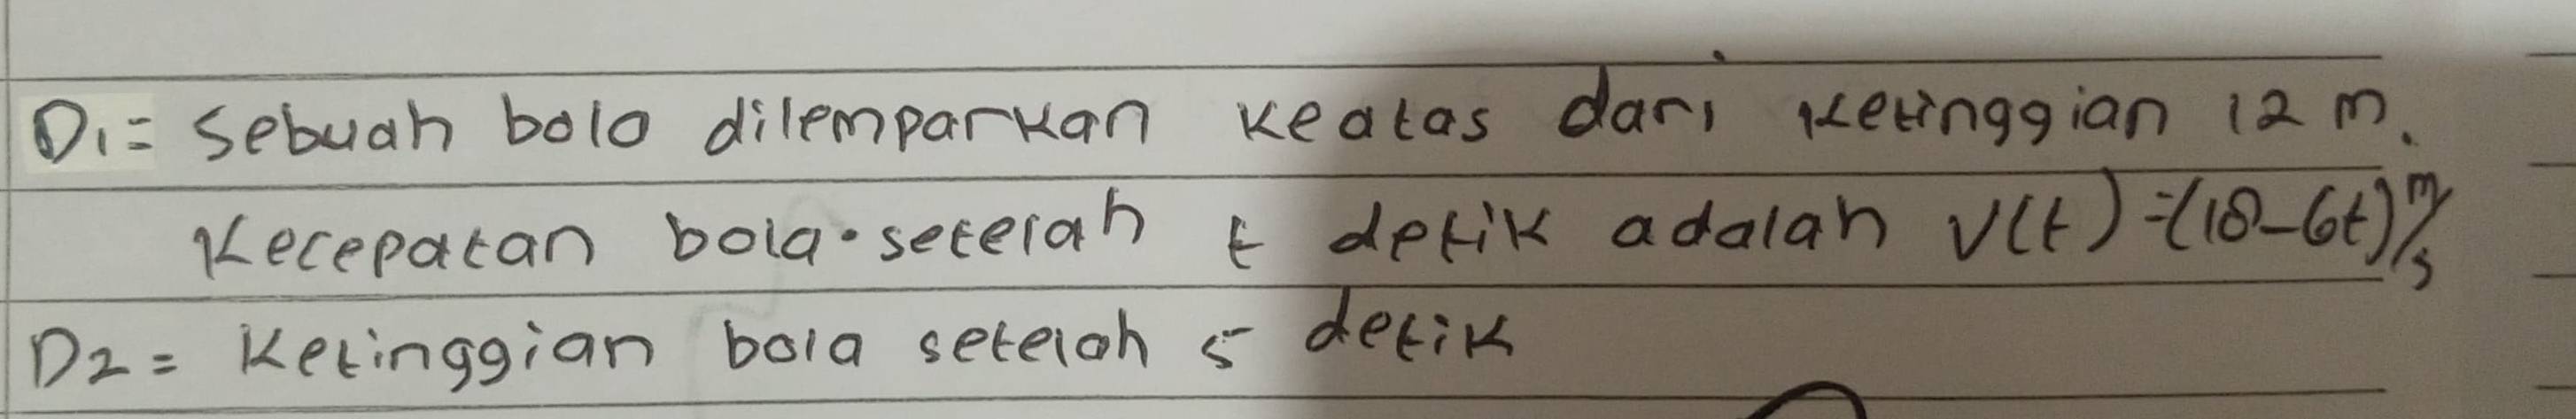 D1= Sebuah bola dilemparkan keatas dari ketinggian 12 m.
Kecepatan bola setelah t detik adalah v(t)=(18-6t) m/s
D2= Ketinggian bola setelah 5 detik